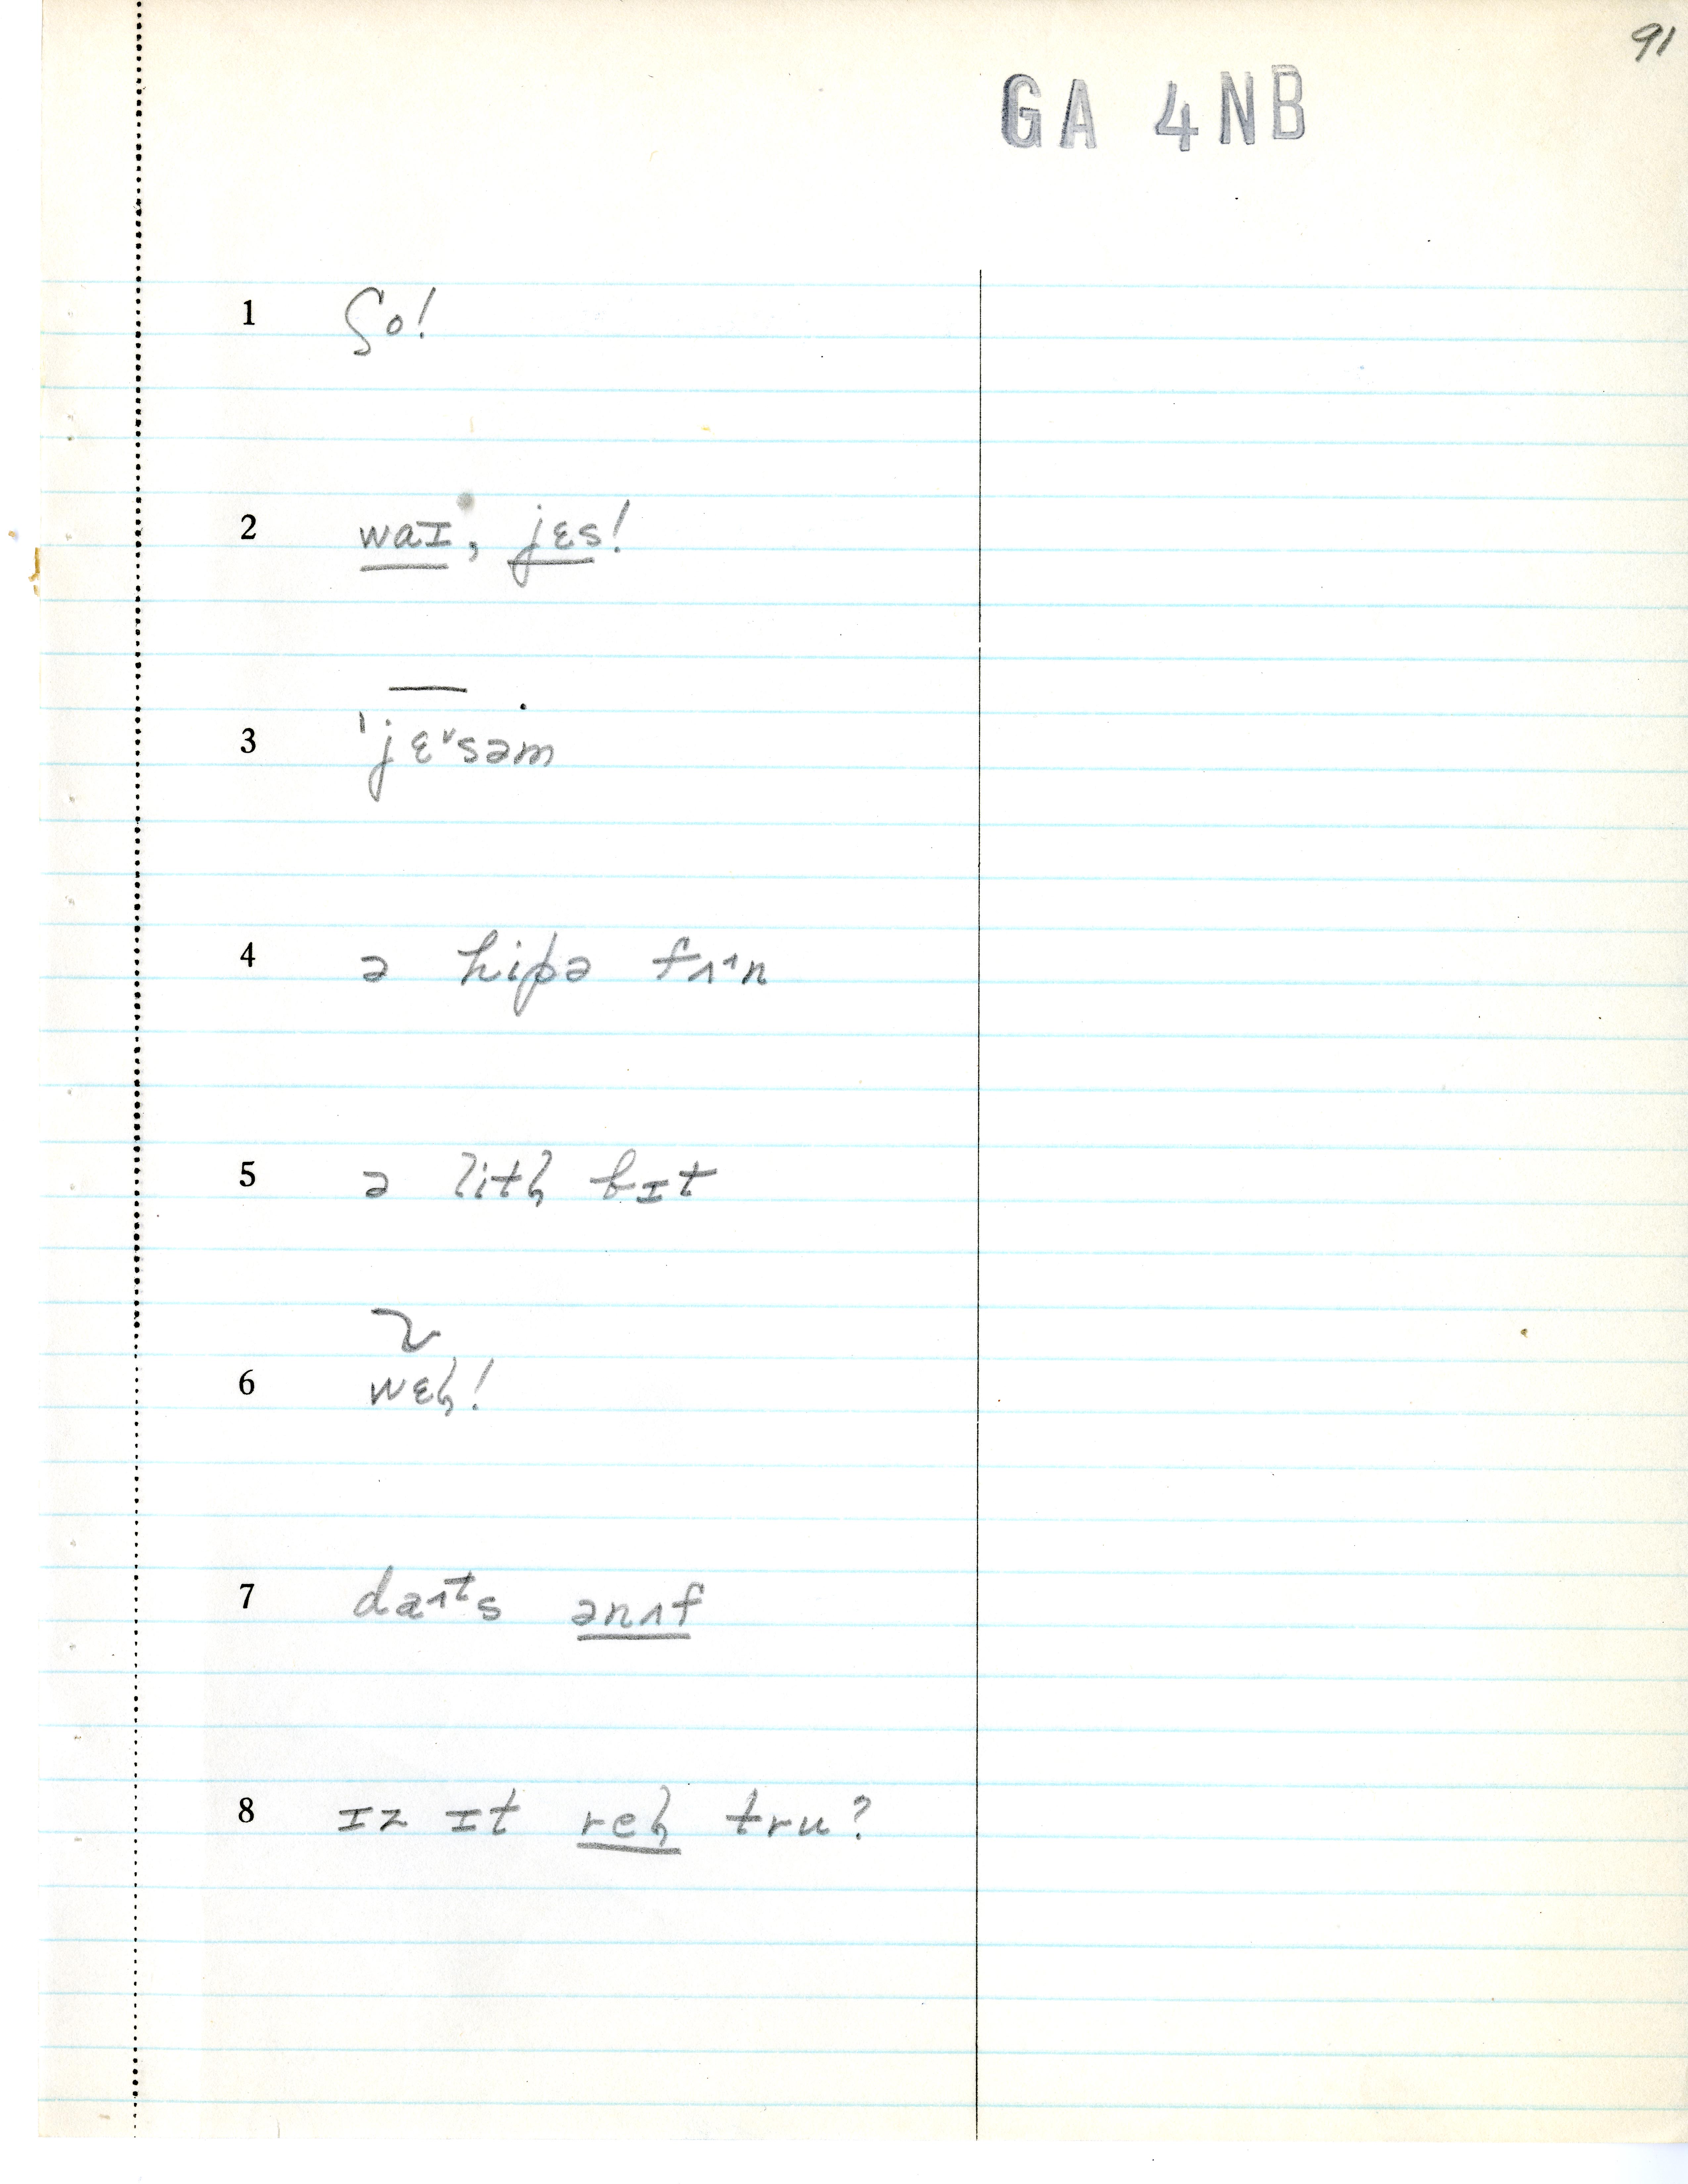 91
GA 4NB
1 ʃo!
2 waɪ, jɛs!
3 ˈjɛᵛsəm
4 ə hipə fʌᶺn
5 ə litɫ bɪt
6 wɛɫ!
7 daᶺᵗs ənʌf
8 ɪz ɪt reɫ tru?